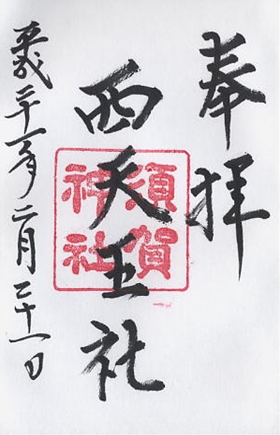 奉拝
西天王社
須賀
神社
平成二十一年二月二十一日